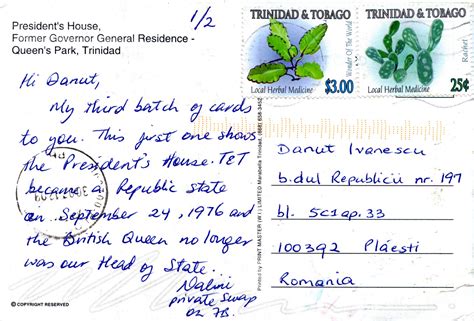 President's House,
Former Governor General Residence -
Queen's Park, Trinidad
1/2
Hi Danut,
My third batch of cards
to you. This first one shows
the President's House. T&T
became a Republic State
on September 24, 1976 and
the British Queen no longer
was our Head of State...
Nalini
private swap
02 7B.
© COPYRIGHT RESERVED
Printed by PRINT MASTER (W.I.) LIMITED Marabella Trinidad. (868) 658-3452
TRINIDAD & TOBAGO
Wonder Of The World
Local Herbal Medicine
$3.00
TRINIDAD & TOBAGO
Rachet
Local Herbal Medicine
25¢
Danut Ivanescu
b.dul Republicii nr. 197
bl. 5C1 ap. 33
100392 Plăesti
Romania